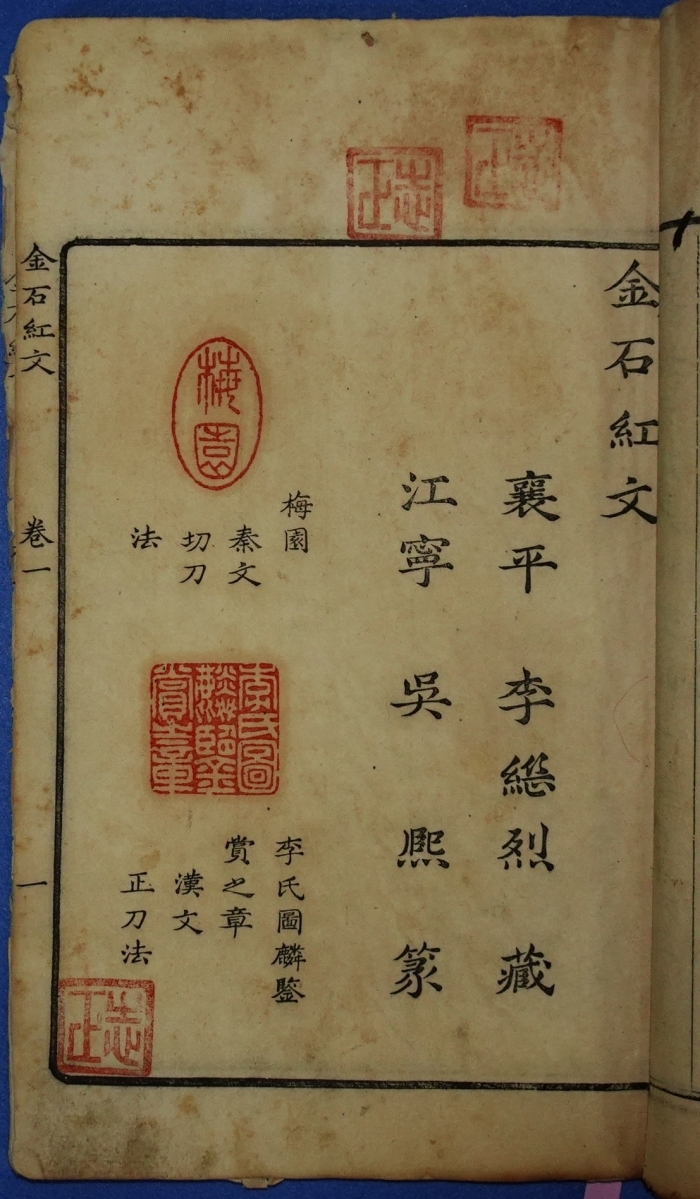 金石紅文
襄平 李繼烈 藏
江寧 吳 熙 篆
梅園
秦文
切刀
法
梅園
李氏圖麟鑒
賞之章
漢文
正刀法
李氏圖麟鑒賞之章
金石紅文 卷一 一